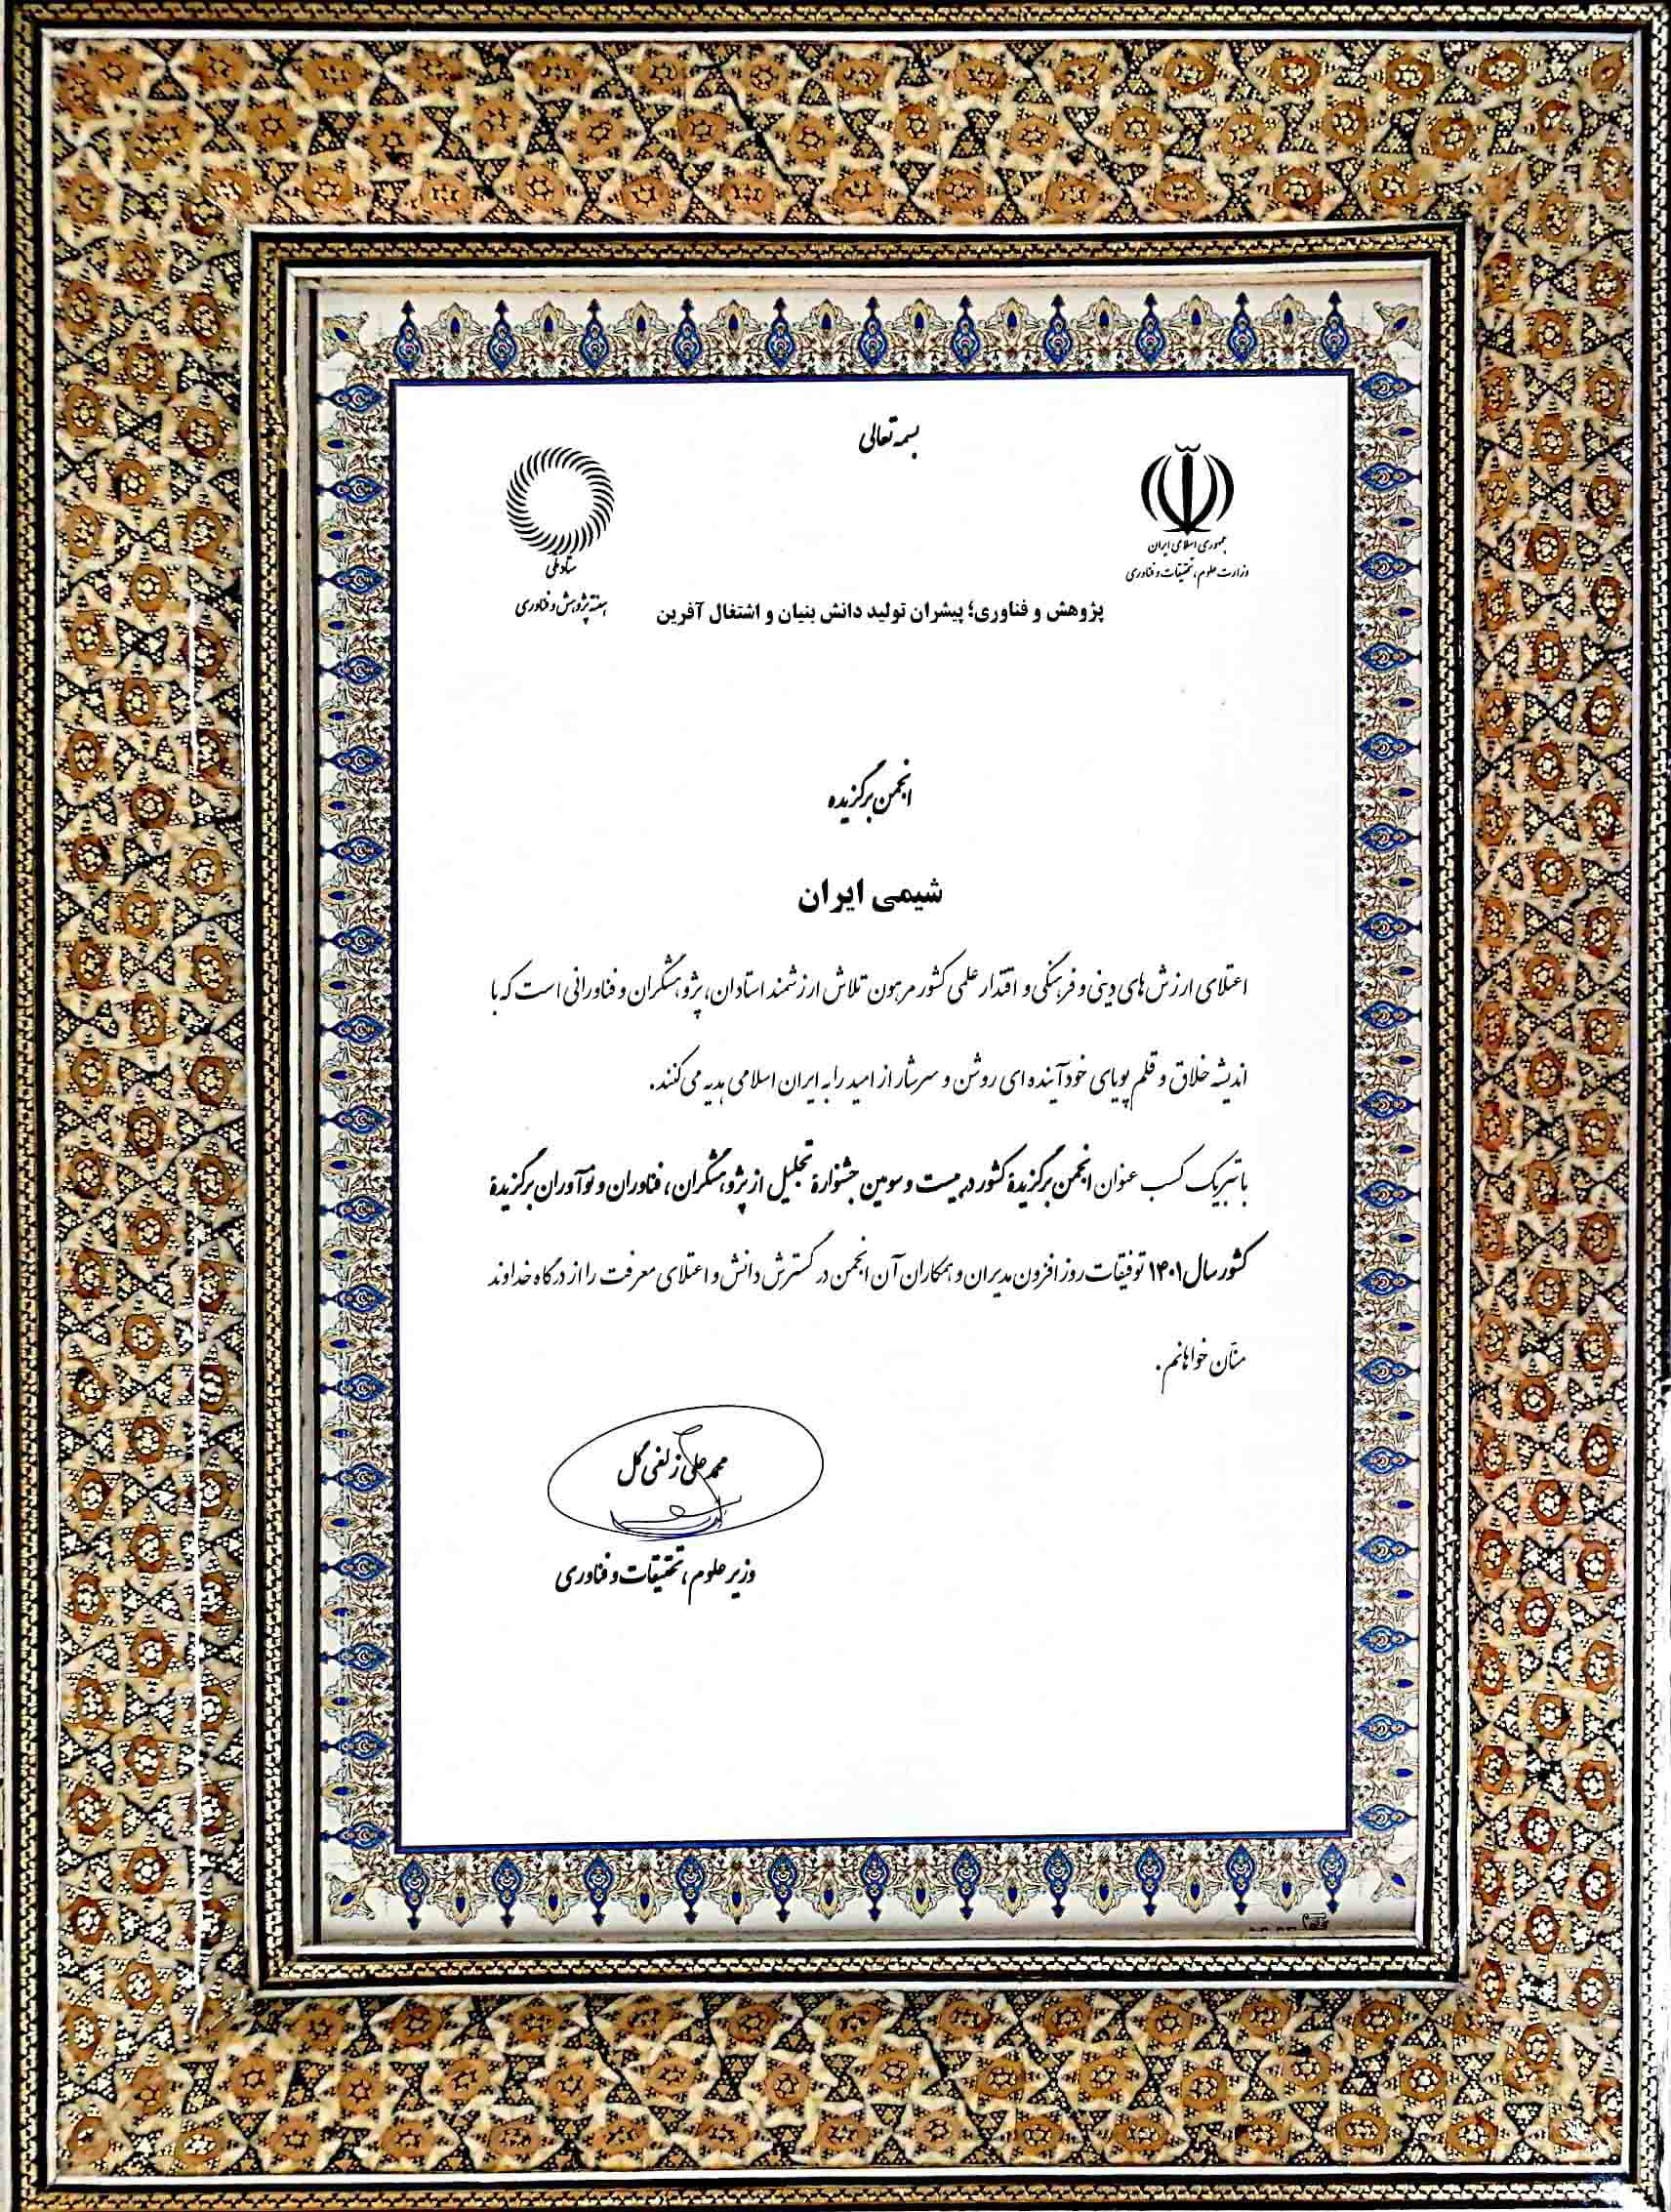 بسمه تعالی
جمهوری اسلامی ایران
وزارت علوم، تحقیقات و فناوری
ستاد ملی
هفته پژوهش و فناوری
پژوهش و فناوری؛ پیشران تولید دانش بنیان و اشتغال آفرین
انجمن برگزیده
شیمی ایران
اعتلای ارزش های دینی و فرهنگی و اقتدار علمی کشور مرهون تلاش ارزشمند استادان، پژوهشگران و فناورانی است که با
اندیشه خلاق و قلم پویای خود آینده ای روشن و سرشار از امید را به ایران اسلامی هدیه می کنند.
با تبریک کسب عنوان انجمن برگزیدۀ کشور در بیست و سومین جشنوارۀ تجلیل از پژوهشگران، فناوران و نوآوران برگزیدۀ
کشور سال ۱۴۰۱ توفیقات روز افزون مدیران و همکاران آن انجمن در گسترش دانش و اعتلای معرفت را از درگاه خداوند
منّان خواهانم.
محمد علی زلفی گل
وزیر علوم، تحقیقات و فناوری